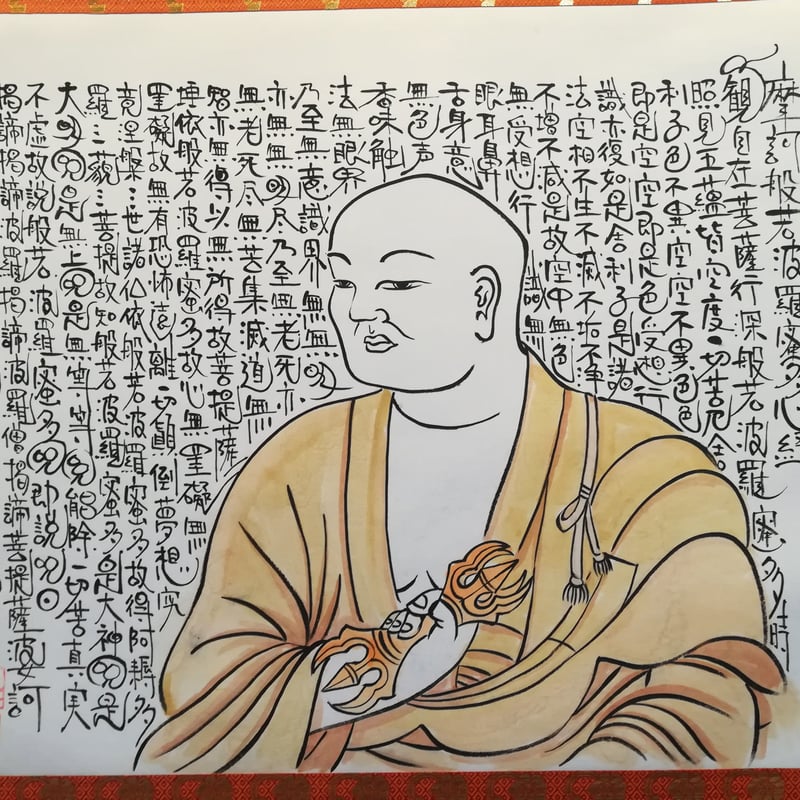 摩訶般若波羅蜜多心経
観自在菩薩行深般若波羅蜜多時
照見五蘊皆空度一切苦厄舎
利子色不異空空不異色色
即是空空即是色受想行
識亦復如是舎利子是諸
法空相不生不滅不垢不浄
不増不減是故空中無色
無受想行識無
眼耳鼻
舌身意
無色声
香味触
法無眼界
乃至無意識界無無明
亦無無明尽乃至無老死亦
無老死尽無苦集滅道無
智亦無得以無所得故菩提薩
埵依般若波羅蜜多故心無罣礙無
罣礙故無有恐怖遠離一切顛倒夢想究
竟涅槃三世諸仏依般若波羅蜜多故得阿耨多
羅三藐三菩提故知般若波羅蜜多是大神呪是
大明呪是無上呪是無等等呪能除一切苦真実
不虚故説般若波羅蜜多呪即説呪曰
掲諦掲諦波羅掲諦波羅僧掲諦菩提薩婆訶